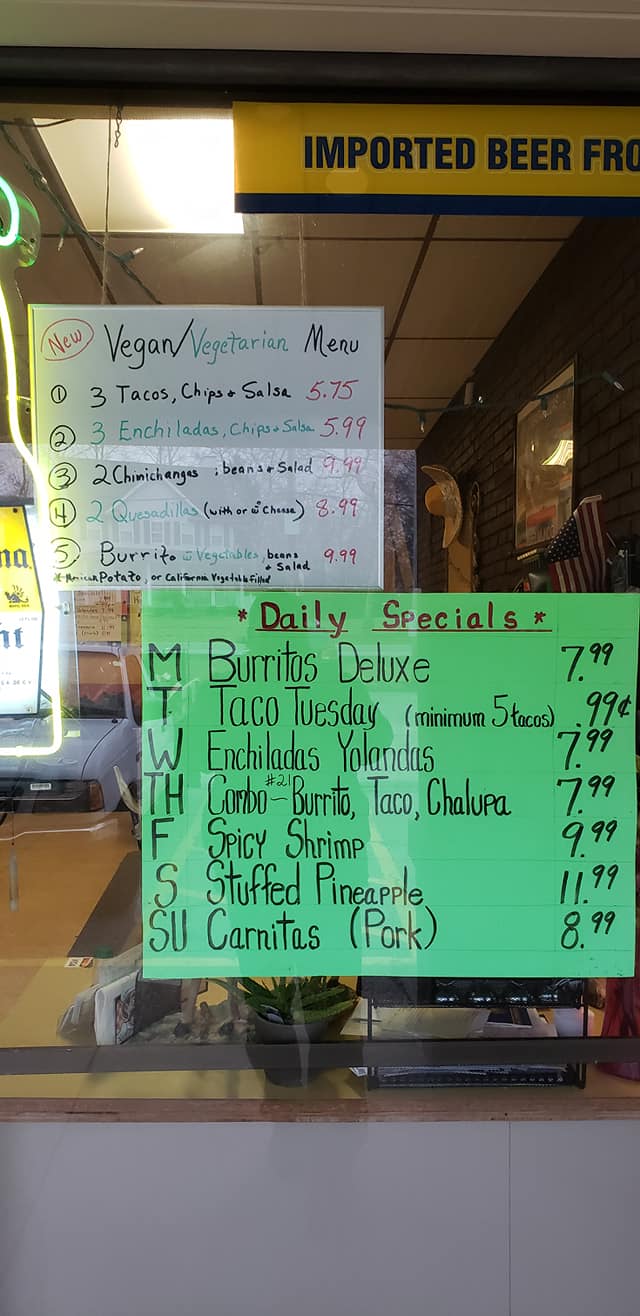 IMPORTED BEER FRO
New Vegan/Vegetarian Menu
1 3 Tacos, Chips + Salsa 5.75
2 3 Enchiladas, Chips + Salsa 5.99
3 2 Chinichangas ; beans + Salad 9.99
4 2 Quesadillas (with or w° Cheese) 8.99
5 Burrito w Vegetables, beans + Salad 9.99
Potato, or California Vegetable filled
* Daily Specials *
M Burritos Deluxe 7.99
T Taco Tuesday (minimum 5 tacos) .99¢
W Enchiladas Yolandas 7.99
TH Combo #21 ~ Burrito, Taco, Chalupa 7.99
F Spicy Shrimp 9.99
S Stuffed Pineapple 11.99
SU Carnitas (Pork) 8.99
na
ht